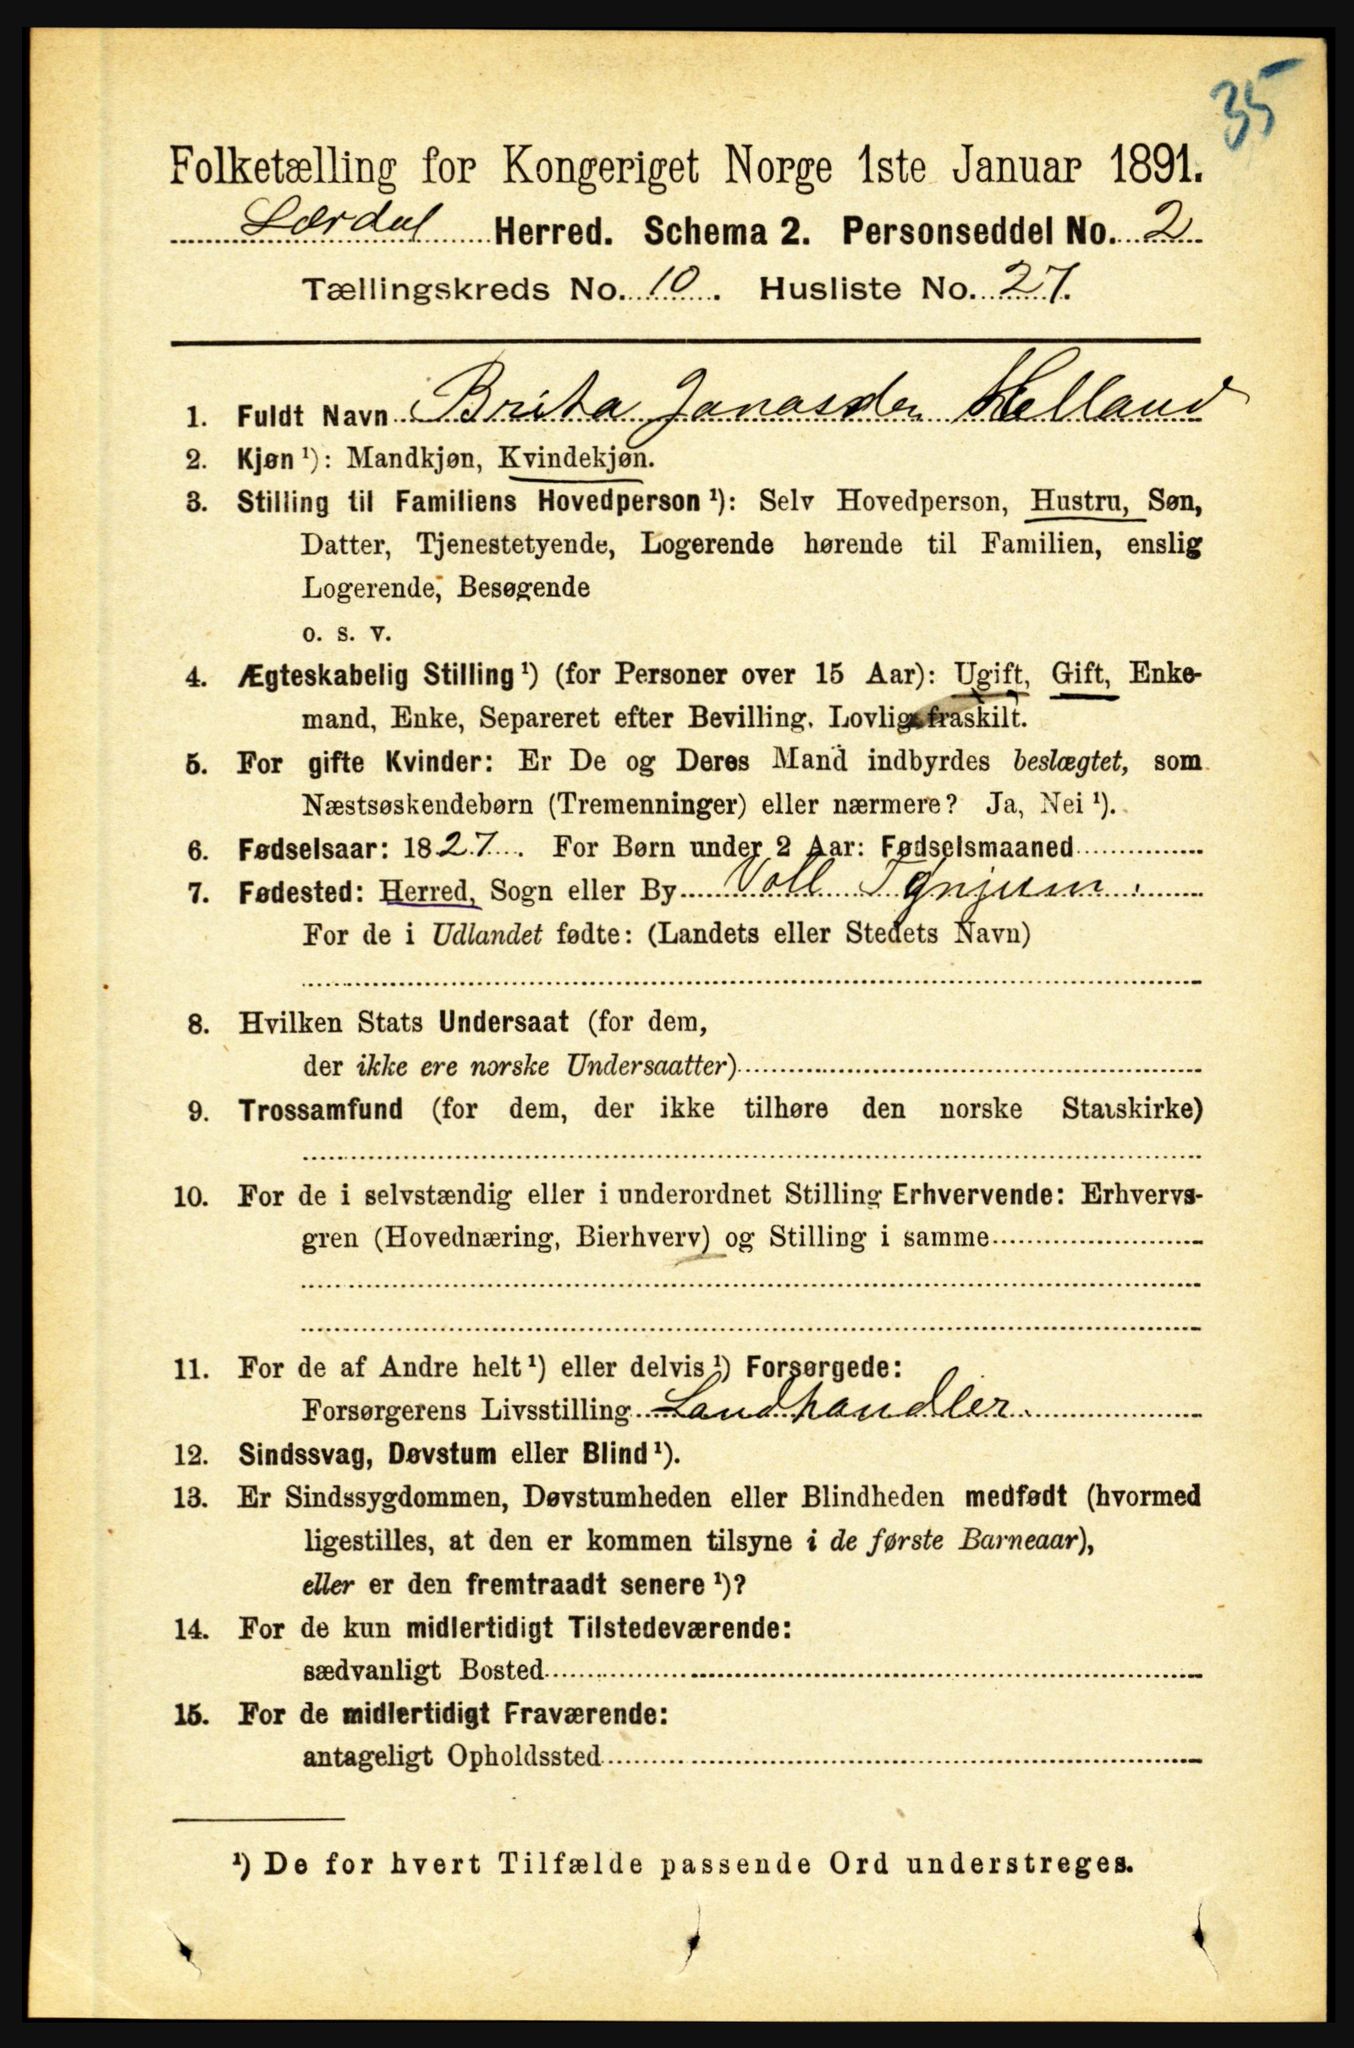 35
Folketælling for Kongeriget Norge 1ste Januar 1891.
Lærdal Herred. Schema 2. Personseddel No. 2
Tællingskreds No. 10. Husliste No. 27.
1. Fuldt Navn Brita Jonasdr Helland
2. Kjøn ¹): Mandkjøn, Kvindekjøn.
3. Stilling til Familiens Hovedperson ¹): Selv Hovedperson, Hustru, Søn,
Datter, Tjenestetyende, Logerende hørende til Familien, enslig
Logerende, Besøgende
o. s. v.
4. Ægteskabelig Stilling ¹) (for Personer over 15 Aar): Ugift, Gift, Enke-
mand, Enke, Separeret efter Bevilling, Lovlig fraskilt.
5. For gifte Kvinder: Er De og Deres Mand indbyrdes beslægtet, som
Næstsøskendebørn (Tremenninger) eller nærmere? Ja, Nei ¹).
6. Fødselsaar: 1827. For Børn under 2 Aar: Fødselsmaaned
7. Fødested: Herred, Sogn eller By Voll Tønjum.
For de i Udlandet fødte: (Landets eller Stedets Navn)
8. Hvilken Stats Undersaat (for dem,
der ikke ere norske Undersaatter)
9. Trossamfund (for dem, der ikke tilhøre den norske Statskirke)
10. For de i selvstændig eller i underordnet Stilling Erhvervende: Erhvervs-
gren (Hovednæring, Bierhverv) og Stilling i samme
11. For de af Andre helt ¹) eller delvis ¹) Forsørgede:
Forsørgerens Livsstilling Landhandler.
12. Sindssvag, Døvstum eller Blind ¹).
13. Er Sindssygdommen, Døvstumheden eller Blindheden medfødt (hvormed
ligestilles, at den er kommen tilsyne i de første Barneaar),
eller er den fremtraadt senere ¹)?
14. For de kun midlertidigt Tilstedeværende:
sædvanligt Bosted
15. For de midlertidigt Fraværende:
antageligt Opholdssted
¹) De for hvert Tilfælde passende Ord understreges.